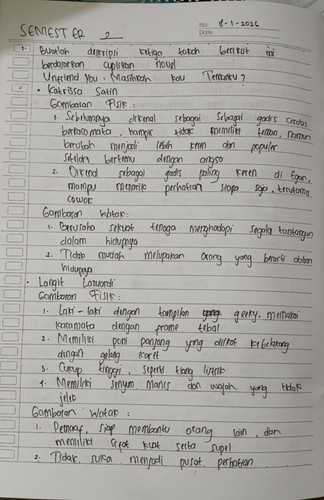 SEMESTER 2
No. 8-1-2026
Date
1. Buatlah deskripsi ketiga tokoh berikut ini
berdasarkan cuplikan novel
Unfriend You : Masihkah kau Temanku?
2. • Katrissa Satin
Gambaran Fisik :
1. Sebelumnya dikenal sebagai sebagai gadis cerdas
berkacamata, hampir tidak memiliki teman, namun
berubah menjadi lebih keren dan populer
setelah bertemu dengan
2. Dikenal sebagai gadis paling keren di Egan,
mampu menarik perhatian siapa saja, terutama
cowok
Gambaran Watak :
1. Berusaha sekuat tenaga menghadapi segala tantangan
dalam hidupnya
2. Tidak mudah melupakan orang yang berarti dalam
hidupnya
• Langit Lazuardi
Gambaran Fisik :
1. Laki-laki dengan tampilan geeky, memakai
kacamata dengan frame tebal
2. Memiliki poni panjang yang diikat ke belakang
dengan karet
3. Cukup tinggi, seperti tiang listrik
4. Memiliki senyum manis dan wajah yang tidak
jelek
Gambaran Watak :
1. siap membantu orang lain, dan
memiliki sifat kuat serta supel
2. Tidak suka menjadi pusat perhatian